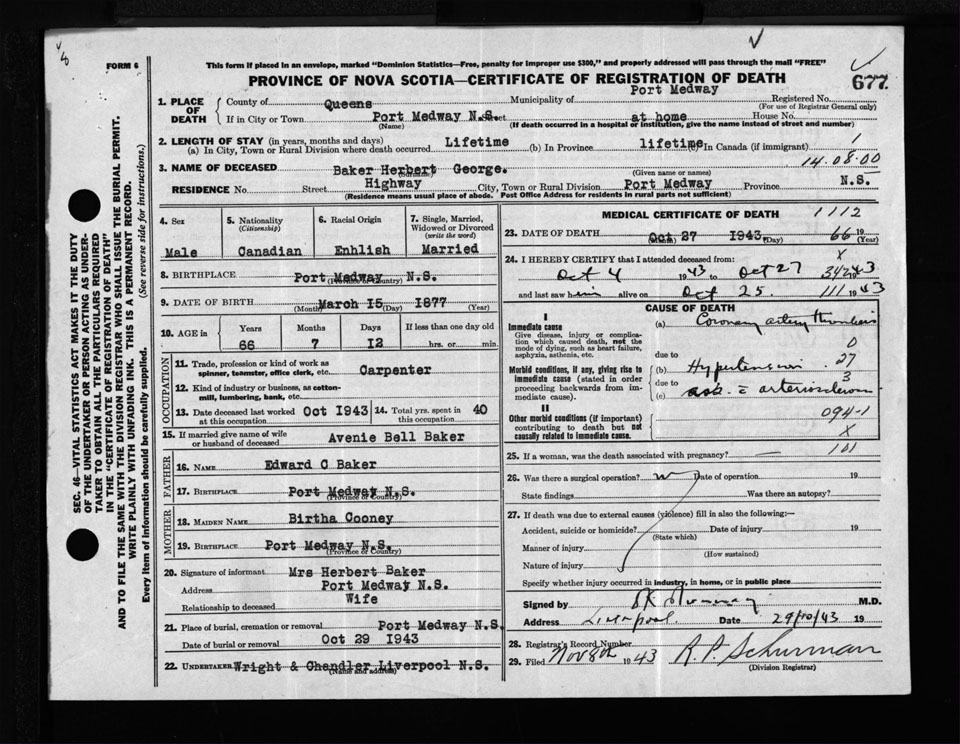 FORM 6
This form if placed in an envelope, marked "Dominion Statistics—Free, penalty for improper use $300," and properly addressed will pass through the mail "FREE"
PROVINCE OF NOVA SCOTIA—CERTIFICATE OF REGISTRATION OF DEATH
677.
SEC. 46—VITAL STATISTICS ACT MAKES IT THE DUTY
OF THE UNDERTAKER OR PERSON ACTING AS UNDER-
TAKER TO OBTAIN ALL THE PARTICULARS REQUIRED
IN THE "CERTIFICATE OF REGISTRATION OF DEATH"
AND TO FILE THE SAME WITH THE DIVISION REGISTRAR WHO SHALL ISSUE THE BURIAL PERMIT.
WRITE PLAINLY WITH UNFADING INK. THIS IS A PERMANENT RECORD.
Every item of Information should be carefully supplied. (See reverse side for instructions.)
1. PLACE OF DEATH
County of Queens Municipality of Port Medway Registered No.
(For use of Registrar General only)
If in City or Town Port Medway N.S. Street at home House No.
(Name) (If death occurred in a hospital or institution, give the name instead of street and number)
2. LENGTH OF STAY (in years, months and days)
(a) In City, Town or Rural Division where death occurred Lifetime (b) In Province lifetime (c) In Canada (if immigrant)
14.08.00
3. NAME OF DECEASED Baker Herbert George.
(Surname) (Given name or names)
RESIDENCE No. Street Highway City, Town or Rural Division Port Medway Province N.S.
(Residence means usual place of abode. Post Office Address for residents in rural parts not sufficient)
4. Sex
Male
5. Nationality
(Citizenship)
Canadian
6. Racial Origin
Enhlish
7. Single, Married,
Widowed or Divorced
(write the word)
Married
8. BIRTHPLACE Port Medway N.S.
(Province or Country)
9. DATE OF BIRTH March 15 1877
(Month) (Day) (Year)
10. AGE in
Years Months Days If less than one day old
66 7 12 hrs. or min.
OCCUPATION
11. Trade, profession or kind of work as
spinner, teamster, office clerk, etc. Carpenter
12. Kind of industry or business, as cotton-
mill, lumbering, bank, etc.
13. Date deceased last worked Oct 1943
at this occupation
14. Total yrs. spent in 40
this occupation
15. If married give name of wife
or husband of deceased Avenie Bell Baker
FATHER
16. NAME Edward C Baker
17. BIRTHPLACE Port Medway N.S.
(Province or Country)
MOTHER
18. MAIDEN NAME Birtha Cooney
19. BIRTHPLACE Port Medway N.S.
(Province or Country)
20. Signature of informant Mrs Herbert Baker
Address Port Medway N.S.
Relationship to deceased Wife
21. Place of burial, cremation or removal Port Medway N.S.
Date of burial or removal Oct 29 1943
22. UNDERTAKER Wright & Chandler Liverpool N.S.
(Name and address)
MEDICAL CERTIFICATE OF DEATH
1112
23. DATE OF DEATH Oct 27 1943. 66 19
(Month) (Day) (Year)
24. I HEREBY CERTIFY that I attended deceased from:
Oct 4 1943 to Oct 27 1943
and last saw him alive on Oct 25. 111 1943
CAUSE OF DEATH
I
Immediate cause
Give disease, injury or complica-
tion which caused death, not the
mode of dying, such as heart failure,
asphyxia, asthenia, etc.
(a) Coronary artery thrombosis
0
due to
Morbid conditions, if any, giving rise to
immediate cause (stated in order
proceeding backwards from im-
mediate cause).
(b) Hypertension 27
due to 3
(c)
II
Other morbid conditions (if important)
contributing to death but not
causally related to immediate cause.
094-1
X
101
25. If a woman, was the death associated with pregnancy?
26. Was there a surgical operation? Date of operation 19
State findings Was there an autopsy?
27. If death was due to external causes (violence) fill in also the following:—
Accident, suicide or homicide? Date of injury 19
(State which)
Manner of injury
(How sustained)
Nature of injury
Specify whether injury occurred in industry, in home, or in public place
Signed by M.D.
Address Liverpool. Date 29/10/43 19
28. Registrar's Record Number
29. Filed Nov 8th 1943 R. P. Schurman
(Division Registrar)